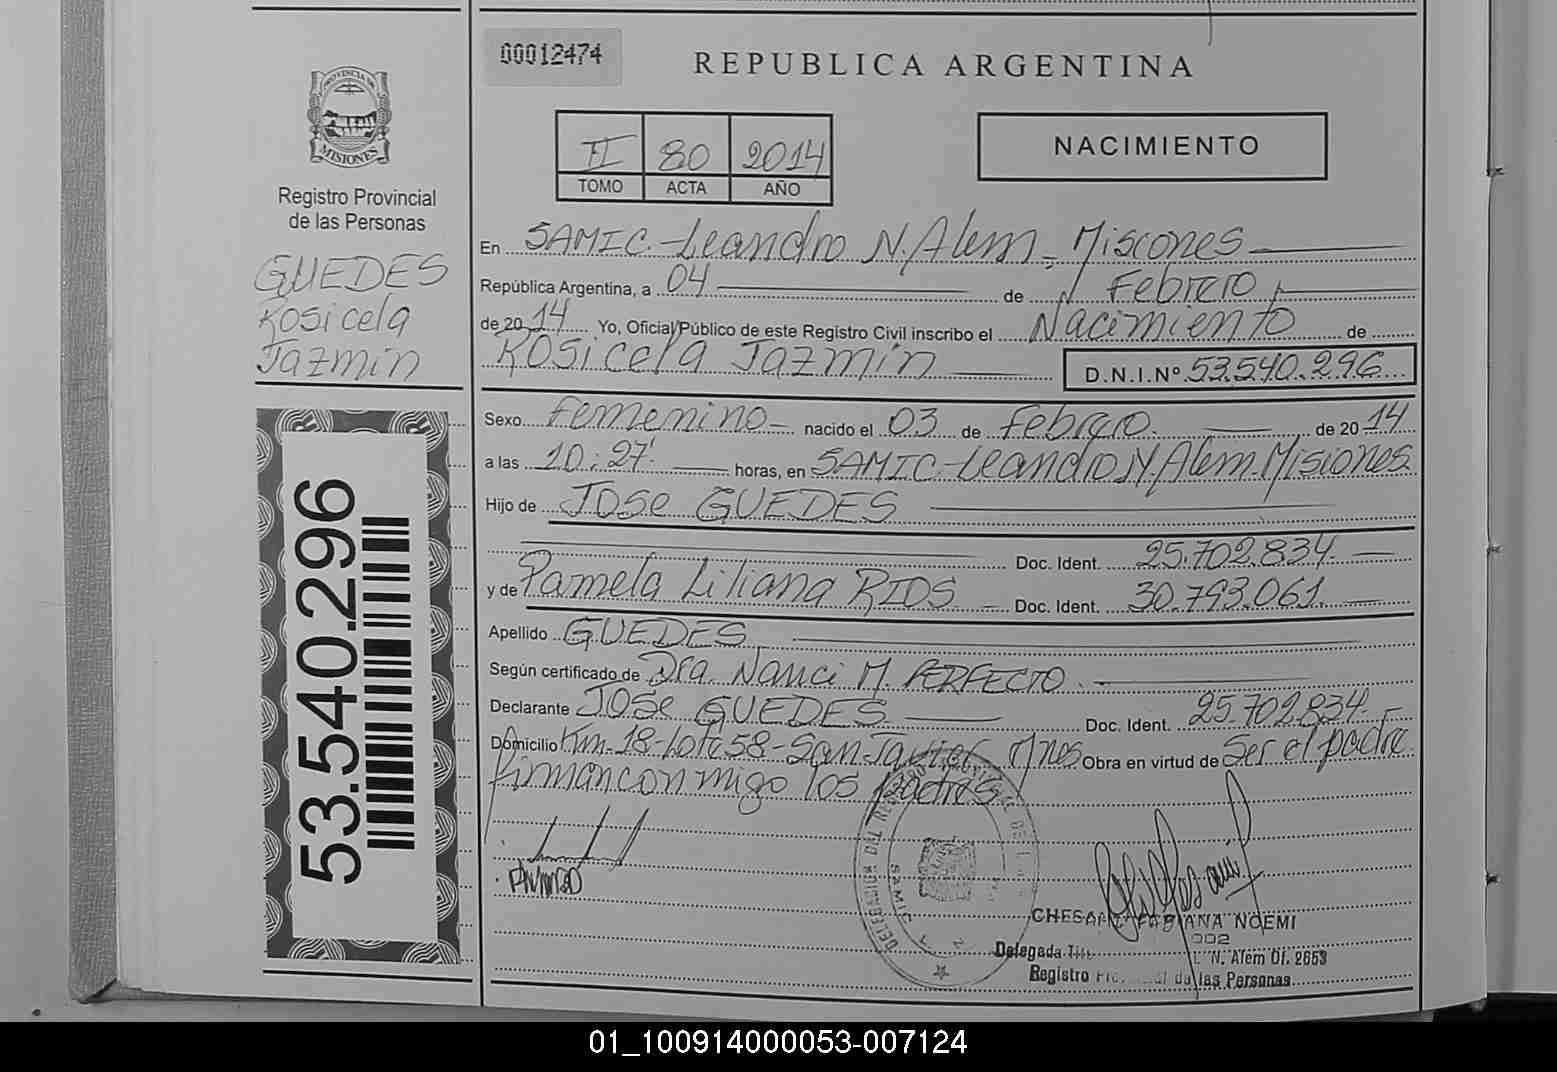 00012474
REPUBLICA ARGENTINA
PROVINCIA DE
MISIONES
Registro Provincial
de las Personas
II 80 2014
TOMO ACTA AÑO
NACIMIENTO
GUEDES
Rosicela
Jazmín
En SAMIC - Leandro N. Alem - Misiones
República Argentina, a 04 de Febrero
de 2014 Yo, Oficial Público de este Registro Civil inscribo el Nacimiento de
Rosicela Jazmín D.N.I.Nº 53.540.296
Sexo Femenino - nacido el 03 de Febrero de 2014
a las 10:27' horas, en SAMIC - Leandro N. Alem - Misiones
Hijo de Jose GUEDES
Doc. Ident. 25.702.834
y de Pamela Liliana RIOS Doc. Ident. 30.793.061
Apellido GUEDES
Según certificado de Dra. Nanci M. PERFECTO
Declarante Jose GUEDES Doc. Ident. 25.702.834
Domicilio Km. 18 - Lote 58 - San Javier Mnes Obra en virtud de Ser el padre
firman conmigo los padres
53.540.296
FABIANA NOEMI
Delegada
N. Alem Of. 2653
Registro de las Personas
01_100914000053-007124